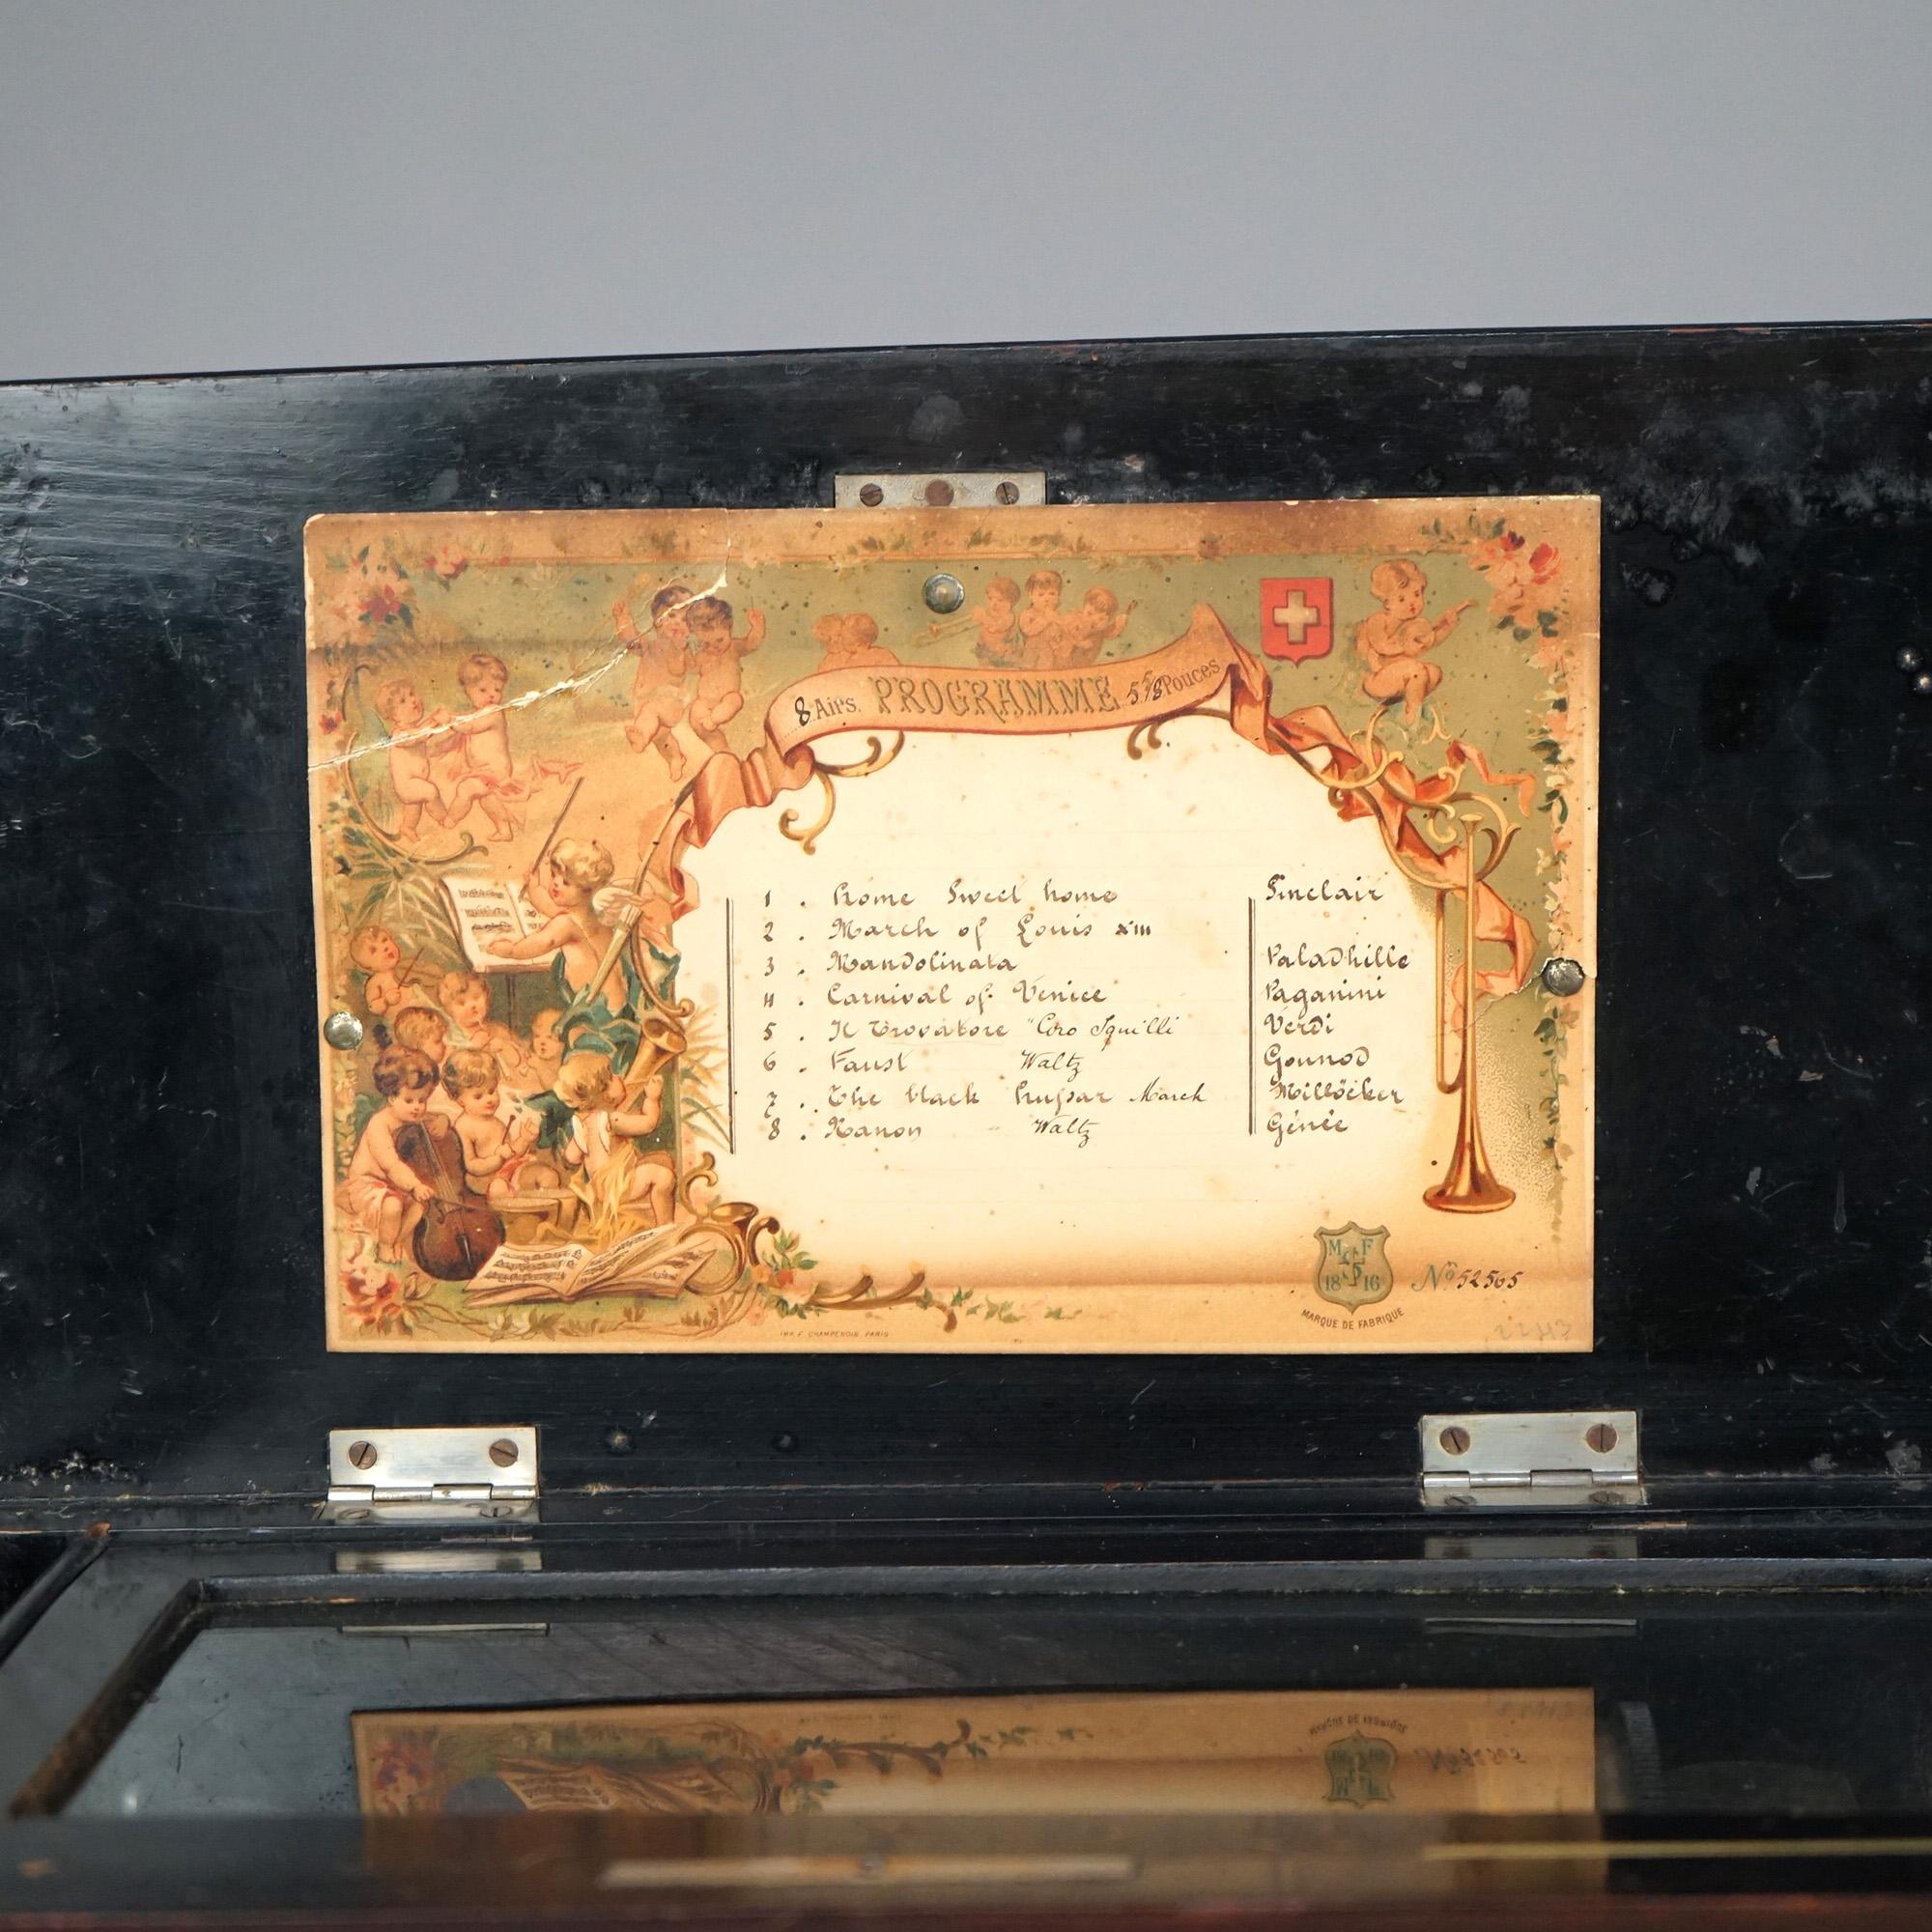 8 Airs. PROGRAMME 5 5/8 Pouces
1 . Home Sweet home Sinclair
2 . March of Louis XIII
3 . Mandolinata Paladhille
4 . Carnival of Venice Paganini
5 . Il Trovatore "Coro Squilli Verdi
6 . Faust Waltz Gounod
7 . The black hussar March Millöcker
8 . Nanon Waltz Génée
M F
18 16
MARQUE DE FABRIQUE
No 52565
IMP. F. CHAMPENOIS, PARIS